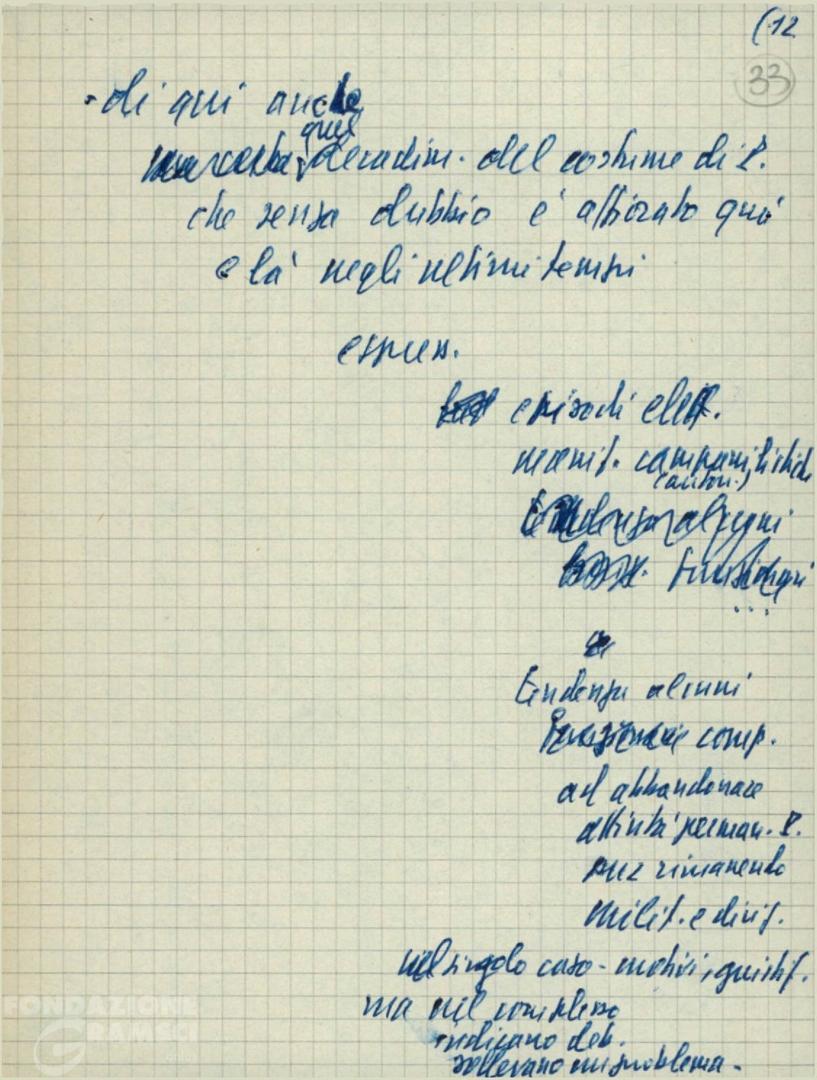 (12
33
- di qui anche
quel
una certa decadim. del costume di P.
che senza dubbio è affiorato quà
e là negli ultimi tempi
espress.
episodi elett.
manif. campanilistiche
(auton.)
tendenza alcuni
funzionari
...
tendenza alcuni
comp.
ad abbandonare
attività perman. P.
pur rimanendo
milit. e dirig.
nel singolo caso - motivi, giustif.
ma nel complesso
indicano deb.
sollevano un problema -
FONDAZIONE
GRAMSCI